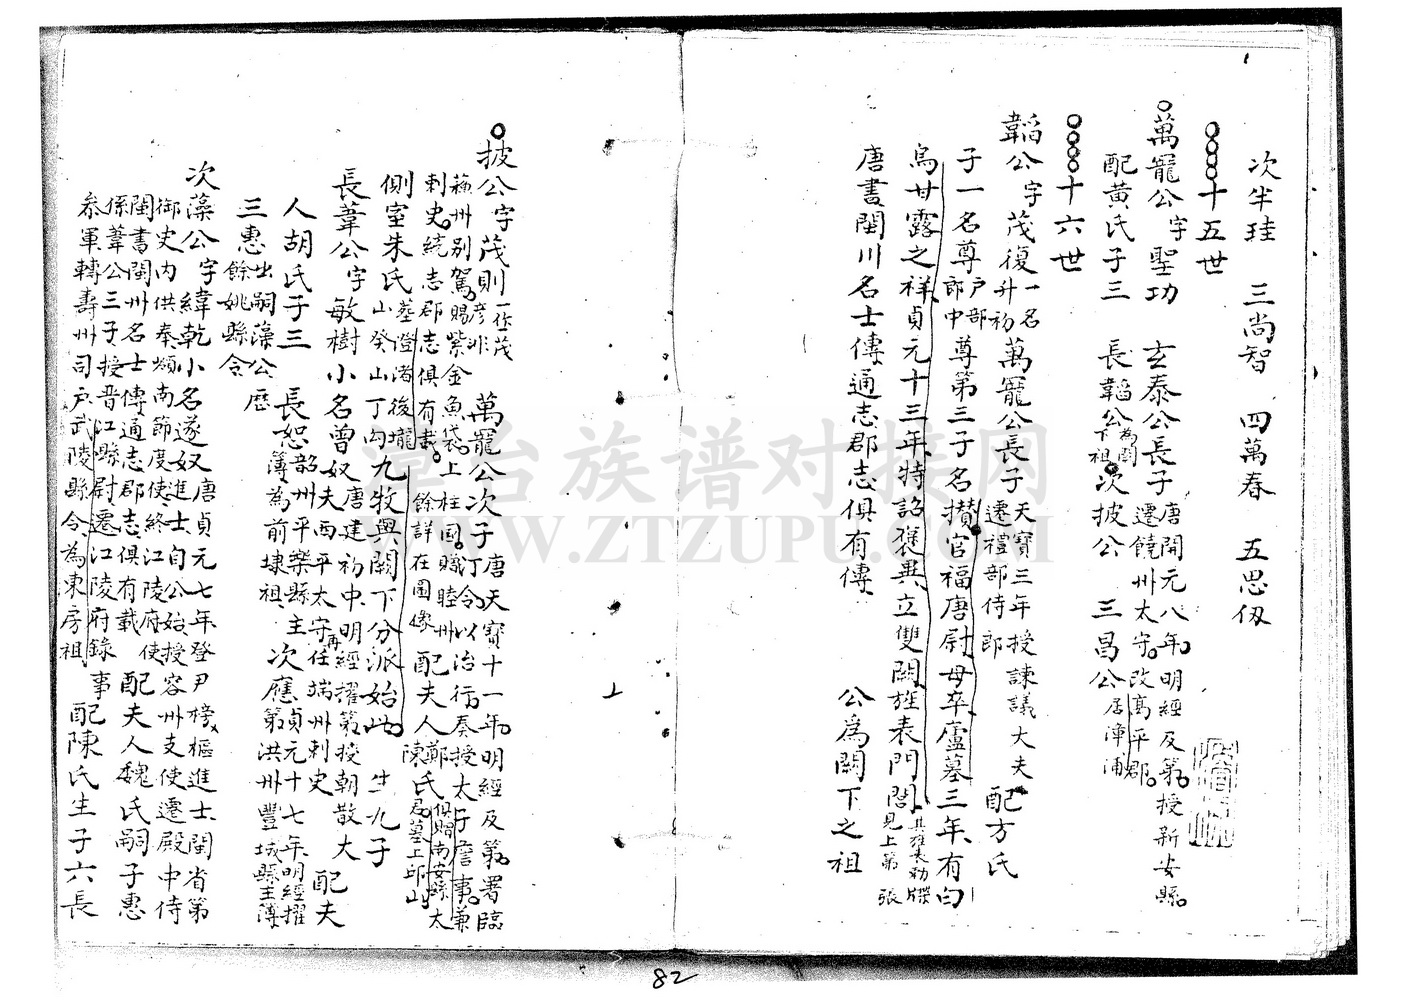 次半珪 三尚智 四萬春 五思伋
十五世
萬寵公 字聖功 玄泰公長子 唐開元八年明經及第授新安縣
遷饒州太守改髙平郡
配黃氏子三 長韜公 為闕下祖 次披公 三昌公 居漳浦
十六世
韜公 字茂復 一名升初 萬寵公長子 天寶三年授諫議大夫
遷禮部侍郎 配方氏
子一名尊 户部郎中 尊第三子名攅官福唐尉母卒廬墓三年有白
烏甘露之祥貞元十三年特詔褒異立雙闕旌表門閭 其旌表勅牒見上第 張
唐書閩川名士傳通志郡志俱有傳 公為闕下之祖
披公字茂則 一作茂彦非 萬寵公次子 唐天寶十一年明經及第署臨
汀令以治行奏授太子詹事兼
蘇州别駕賜紫金魚袋上柱國贈睦州
刺史統志郡志俱有載 餘詳在圖像 配夫人鄭氏 陳 俱贈南安縣太君墓上邱山
側室朱氏 墓澄渚後壠山癸山丁向 九牧與闕下分派始此 生九子
長葦公 字敏樹小名曾奴 唐建初中明經擢第授朝散大
夫西平太守再任端州刺史 配夫
人胡氏子三 長恕 韶州平樂縣主簿為前埭祖 次應 第貞元十七年明經擢第洪州豐城縣主簿
三惠 出嗣藻公歷餘姚縣令
次藻公 字緯乾小名遂奴 唐貞元七年登尹樞榜進士閩省第
進士自公始授容州支使遷殿中侍
御史内供奉嶺南節度使終江陵府使
閩書閩川名士傳通志郡志俱有載 配夫人魏氏嗣子惠
係葦公三子授晋江縣尉遷江陵府錄事
叅軍轉壽州司戶武陵縣令為東房祖 配陳氏生子六長
82
漳台族谱对接网
WWW.ZTZUPU.COM